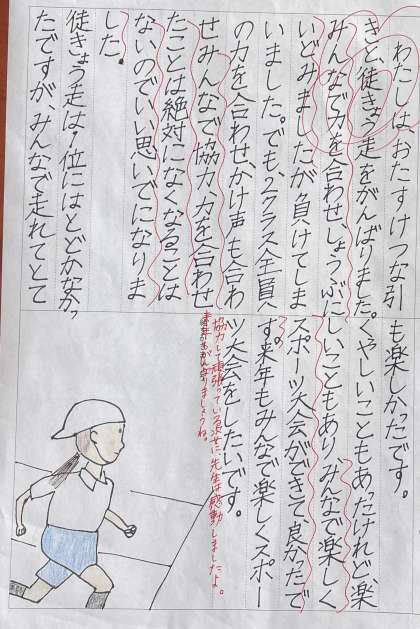 わたしは、おたすけつな引
きと、徒きょう走をがんばりました。
みんなで力を合わせ、しょうぶに
いどみましたが負けてしま
いました。でも、2クラス全員
の力を合わせ、かけ声も合わ
せみんなで協力、力を合わせ
たことは絶対になくなることは
ないのでいい思いでになりま
した。
徒きょう走は、1位にはとどかなかっ
たですが、みんなで走れてとて
も楽しかったです。
くやしいこともあったけれど楽
しいこともあり、みんなで楽しく
スポーツ大会ができて良かったで
す。来年もみんなで楽しくスポー
ツ大会をしたいです。
協力して頑張っている姿に、先生は感動しましたよ。
来年もがんばりましょうね。